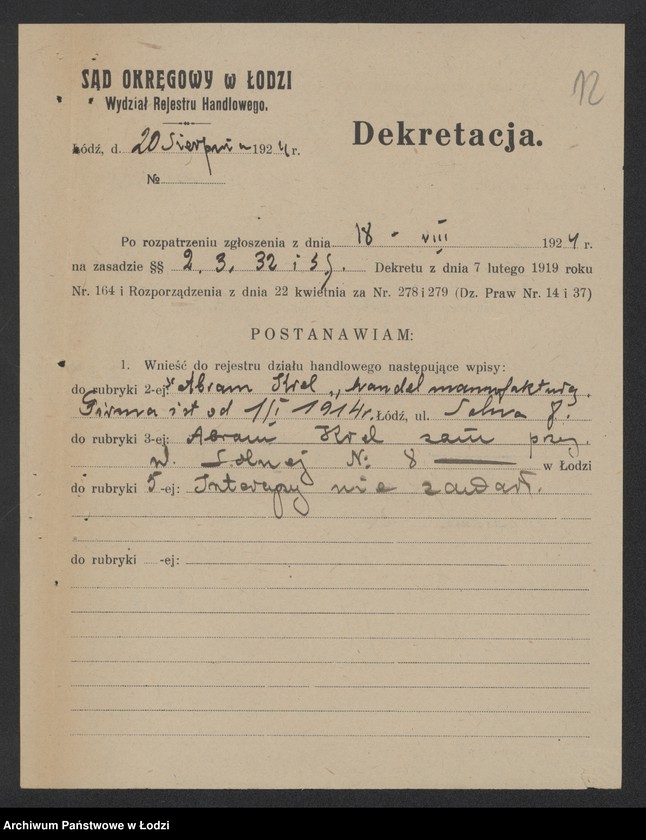 SĄD OKRĘGOWY w ŁODZI
Wydział Rejestru Handlowego.
12
Łódź, d. 20 Sierpnia 1924 r.
Dekretacja.
№
Po rozpatrzeniu zgłoszenia z dnia 18 - VIII 1924 r.
na zasadzie §§ 2, 3, 32 i Dekretu z dnia 7 lutego 1919 roku
Nr. 164 i Rozporządzenia z dnia 22 kwietnia za Nr. 278 i 279 (Dz. Praw Nr. 14 i 37)
POSTANAWIAM:
1. Wnieść do rejestru działu handlowego następujące wpisy:
do rubryki 2-ej: "Abram, handel manufakturą.
Firma ist od 1/I 1914 r. Łódź, ul. Solna 8.
do rubryki 3-ej: Abram zam przy
ul. Solnej № 8 — w Łodzi
do rubryki 5-ej: Intercyzy nie zawarł.
do rubryki -ej:
Archiwum Państwowe w Łodzi